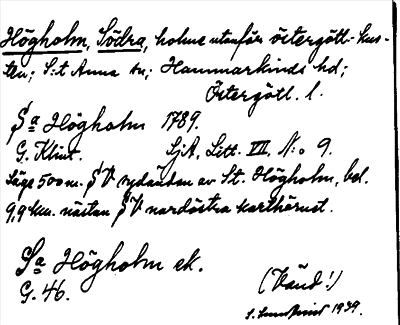 Högholm, Södra, holme utanför östergötl. kus-
ten; S:t Anna sn; Hammarkinds hd;
Östergötl. l.
Sa Högholm 1789.
G. Klint. Sjk, Litt. VII, N:o 9.
Läge 500 m. SV sydändan av St. Högholm, bel.
9,9 km. nästan SV nordöstra karthörnet.
Sa Högholm ek.
G. 46.
(Vänd!)
1939.